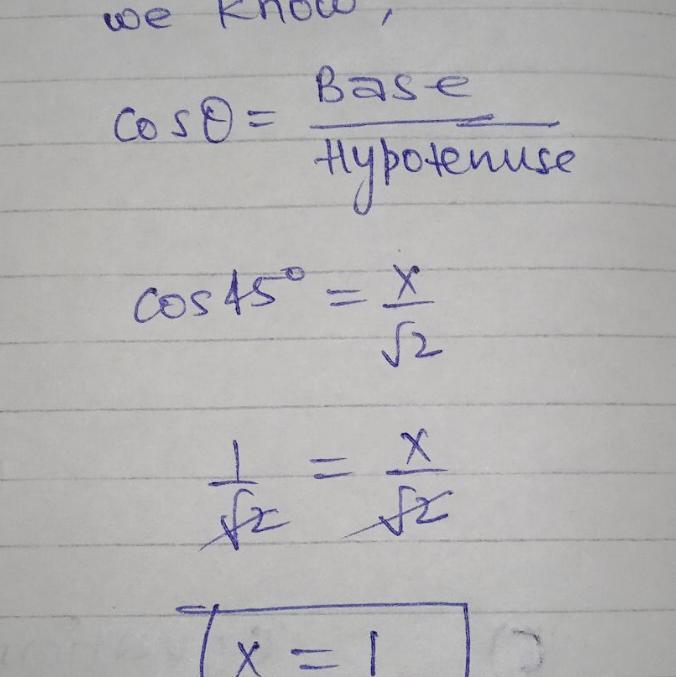 we know,
cosθ = Base / Hypotenuse
cos45° = x / √2
1 / √2 = x / √2
x = 1